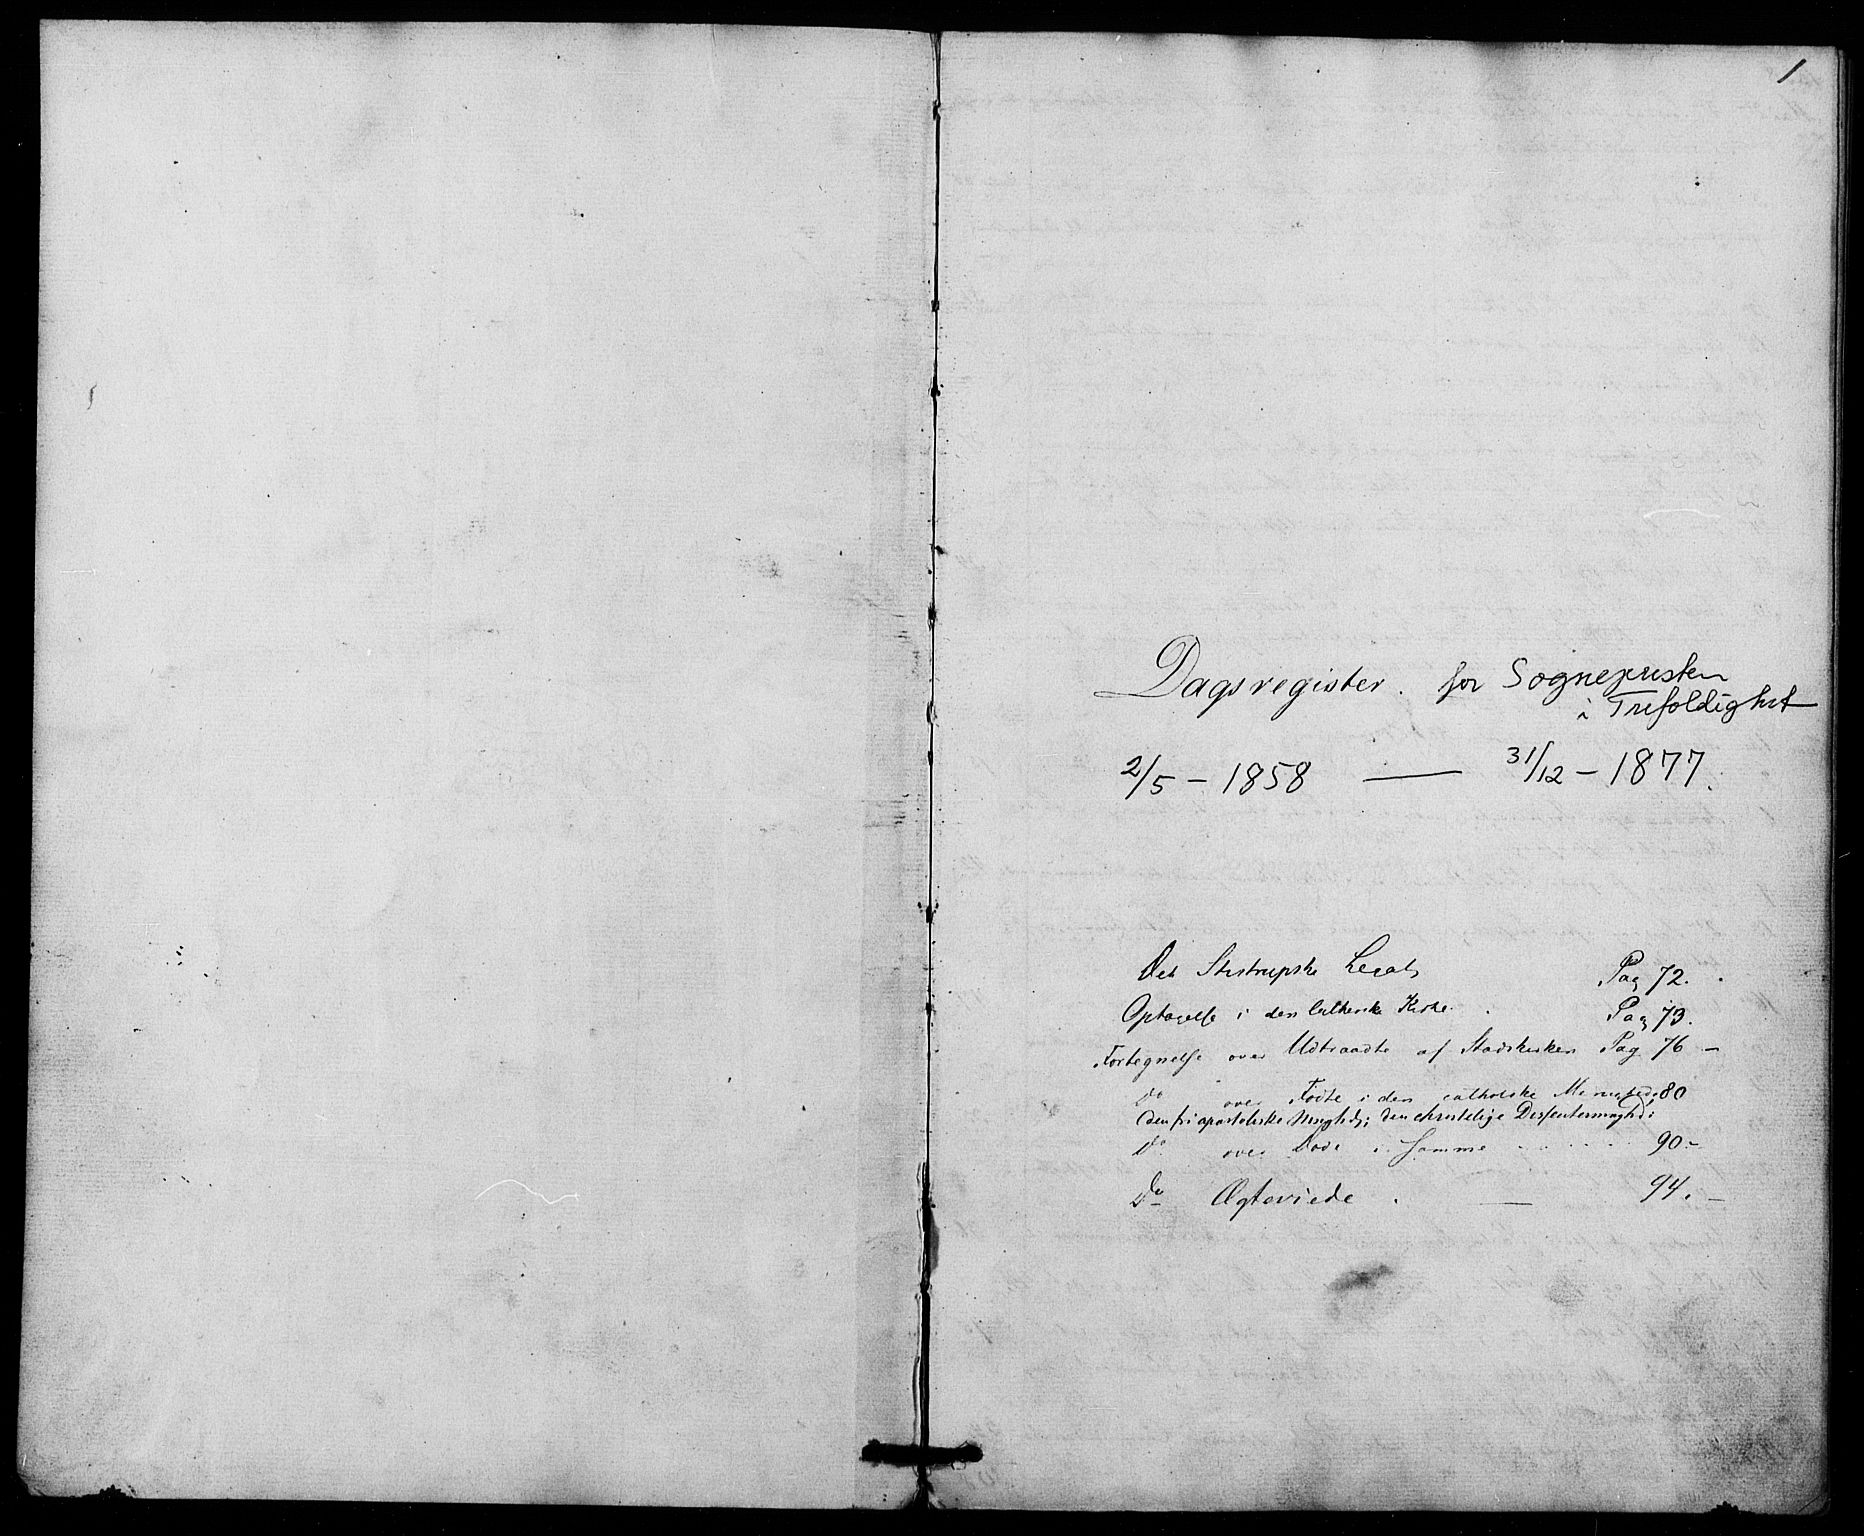 1
Dagsregister. for Sognepresten
i Trefoldighet
2/5 - 1858 — 31/12 - 1877.
Det Legat Pag 72.
Optagelse i den lutherske Kirke. Pag 73.
Fortegnelse over Udtraadte af Statskirken Pag 76 -
Do over Fødte i den catholske Menighed; 80
den fri apostoliske Mnghd; den christelige Dissentermnghd:
Do over Døde i Samme 90 -
Do Ægteviede. — 94. -